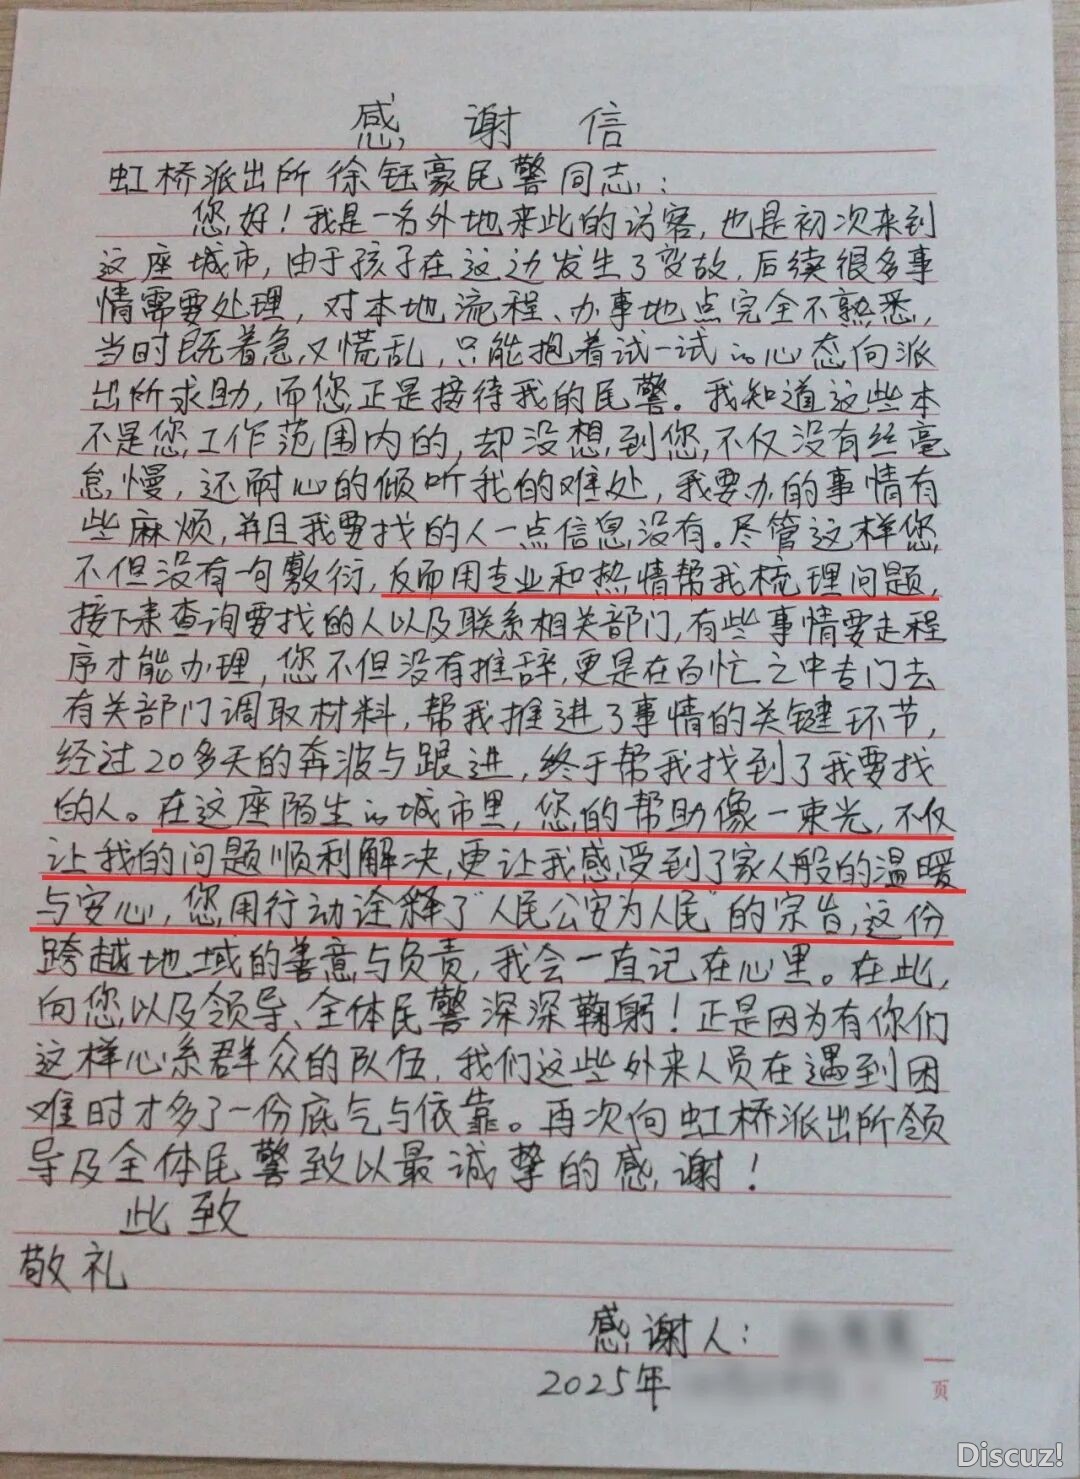 感谢信
虹桥派出所徐钰豪民警同志：
您好！我是一名外地来此的访客，也是初次来到
这座城市，由于孩子在这边发生了变故，后续很多事
情需要处理，对本地流程、办事地点完全不熟悉，
当时既着急又慌乱，只能抱着试一试的心态向派
出所求助，而您正是接待我的民警。我知道这些本
不是您工作范围内的，却没想到您不仅没有丝毫
怠慢，还耐心的倾听我的难处，我要办的事情有
些麻烦，并且我要找的人一点信息没有。尽管这样您
不但没有一句敷衍，反而用专业和热情帮我梳理问题，
接下来查询要找的人以及联系相关部门，有些事情要走程
序才能办理，您不但没有推辞，更是在百忙之中专门去
有关部门调取材料，帮我推进了事情的关键环节，
经过20多天的奔波与跟进，终于帮我找到了我要找
的人。在这座陌生的城市里，您的帮助像一束光，不仅
让我的问题顺利解决，更让我感受到了家人般的温暖
与安心，您用行动诠释了“人民公安为人民”的宗旨，这份
跨越地域的善意与负责，我会一直记在心里。在此，
向您以及领导、全体民警深深鞠躬！正是因为有你们
这样心系群众的队伍，我们这些外来人员在遇到困
难时才多了一份底气与依靠。再次向虹桥派出所领
导及全体民警致以最诚挚的感谢！
此致
敬礼
感谢人：
2025年
页
Discuz!